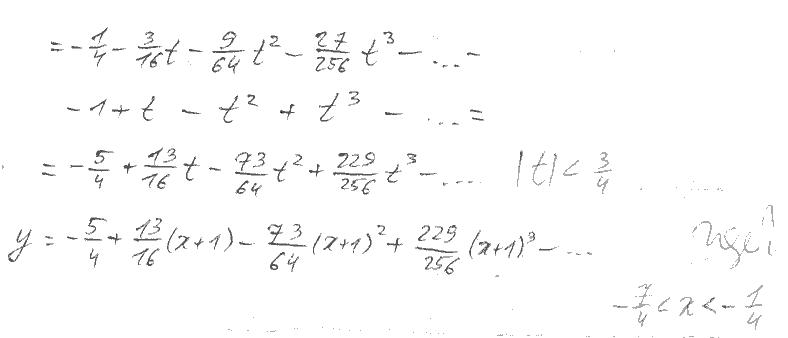 = - 1/4 - 3/16 t - 9/64 t² - 27/256 t³ - ... -
- 1 + t - t² + t³ - ... =
= - 5/4 + 13/16 t - 73/64 t² + 229/256 t³ - ... |t| < 3/4
y = - 5/4 + 13/16 (x+1) - 73/64 (x+1)² + 229/256 (x+1)³ - ... где?
- 7/4 < x < - 1/4